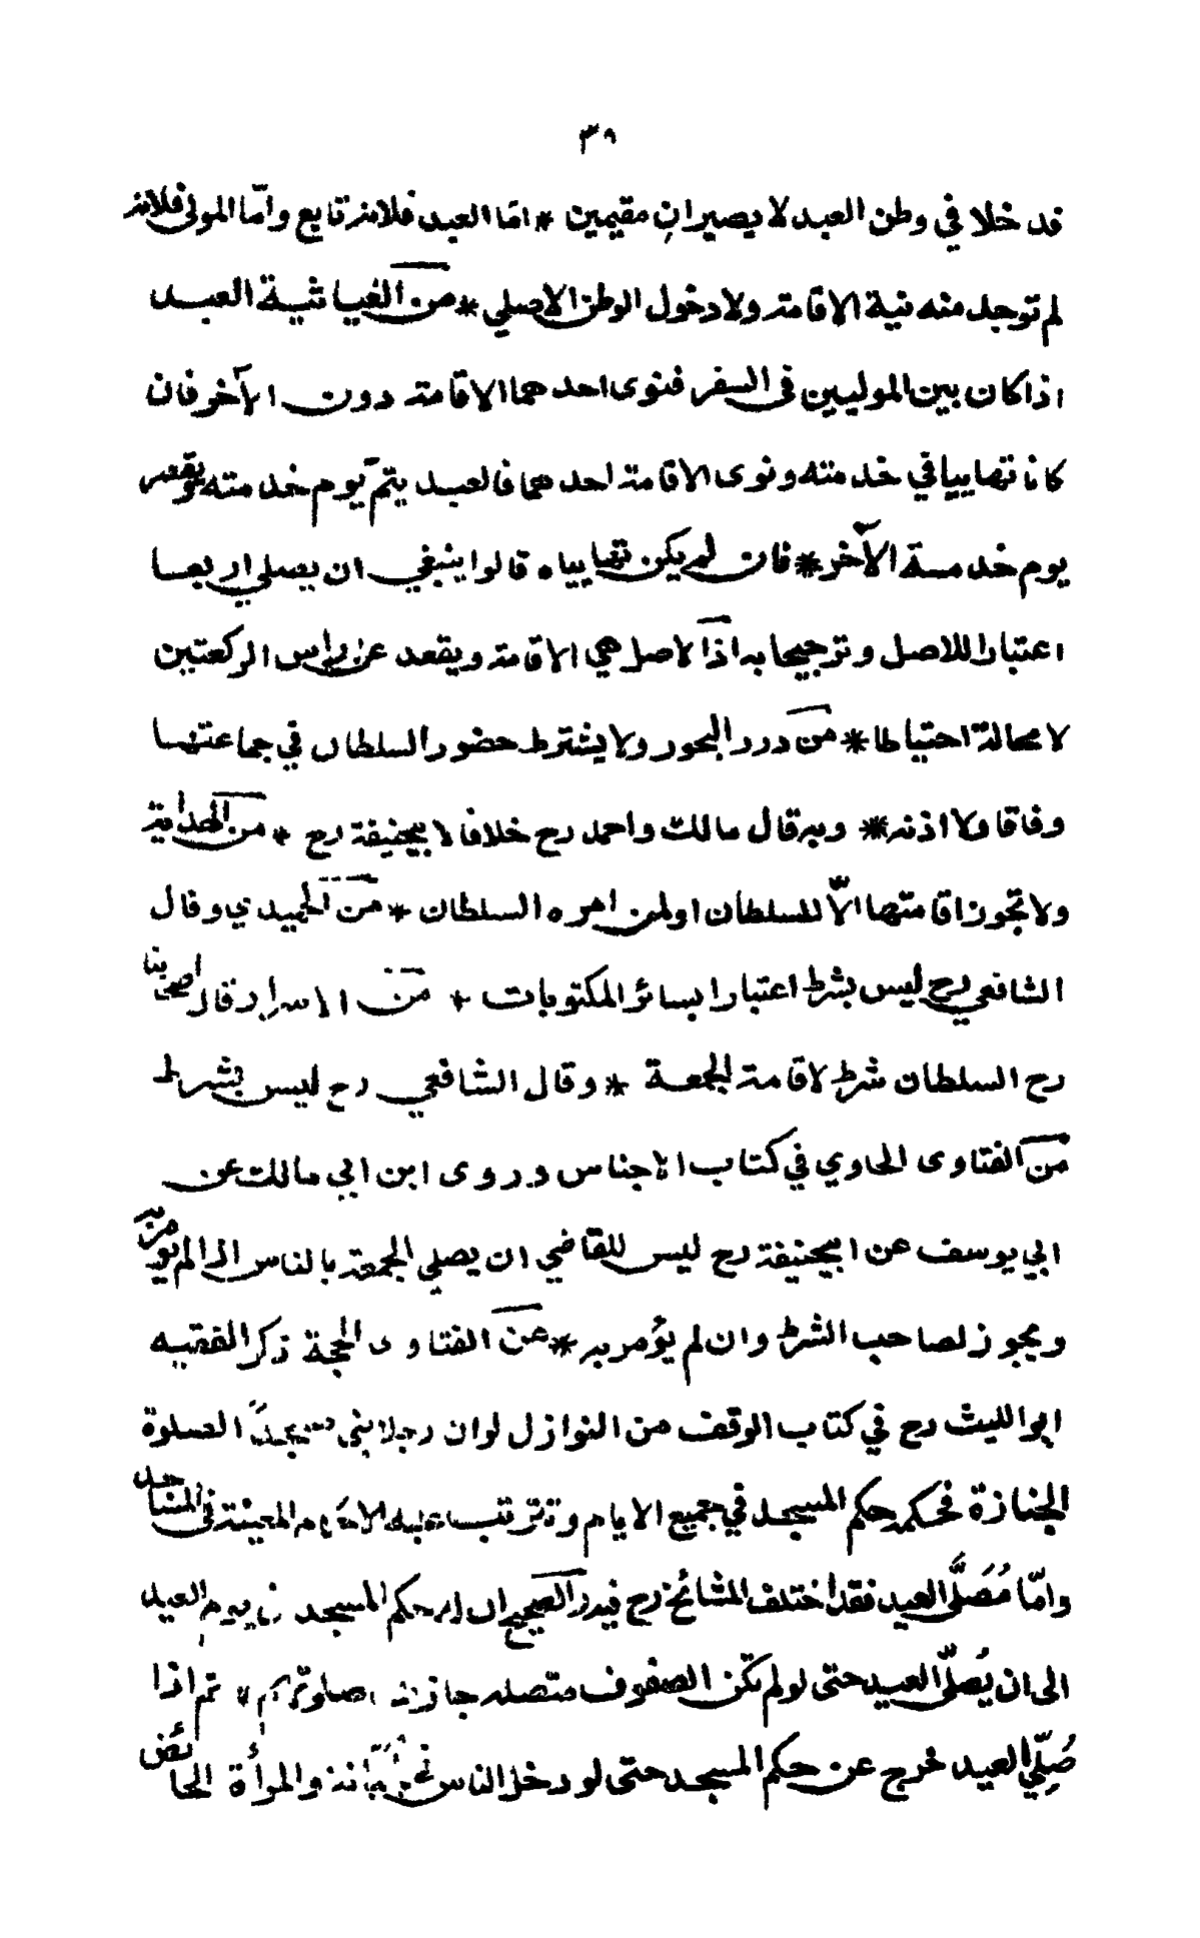 ٣٩
قد خلا في وطن العبد لا يصيران مقيمين * اما العبد فلانه تابع وامّا المولى فلانه
لم توجد منه نية الاقامة ولا دخول الوطن الاصلي * من الغياثية العبد
اذا كان بين الموليين فى السفر فنوى احدهما الاقامة دون الآخر فان
كانا تهاييا في خدمته ونوى الاقامة احدهما فالعبد يتمّ يوم خدمته ويقصر
يوم خدمة الآخر * فان لم يكن تهايياه قالوا ينبغي ان يصلي اربعا
اعتبارا للاصل وترجيحا به اذا لاصل هي الاقامة ويقعد على راس الركعتين
لا محالة احتياطا * من درر البحور ولا يشترط حضور السلطان في جماعتها
وفاقا ولا اذنه * وبه قال مالك واحمد رح خلافا لابيحنيفة رح * من الهداية
ولا تجوز اقامتها الّا للسلطان اولمن امره السلطان * من الحميدي وقال
الشافعي رح ليس بشرط اعتبارا بسائر المكتوبات * من الاسرار قال اصحابنا
رح السلطان شرط لاقامة الجمعة * وقال الشافعي رح ليس بشرط
من الفتاوى الحاوي في كتاب الاجناس وروى ابن ابي مالك عن
ابي يوسف عن ابيحنيفة رح ليس للقاضي ان يصلي الجمعة بالناس اذا لم يؤمر
ويجوز لصاحب الشرط وان لم يؤمر به * من الفتاوى الحجة ذكر الفقيه
ابو الليث رح في كتاب الوقف من النوازل لو ان رجلا بنى مسجدً الصلوة
الجنازة فحكمه حكم المسجد في جميع الايام وتترتب عليه الاحكام المعينة فى المساجد
وامّا مُصَلَّى العيد فقد اختلف المشائخ رح فيه والصحيح ان له حكم المسجد في يوم العيد
الى ان يُصلّى العيد حتى لو لم تكن الصفوف متصله جازت صلوتهم * ثم اذا
صُلِّي العيد خرج عن حكم المسجد حتى لو دخل الناس والمرأة الحائض